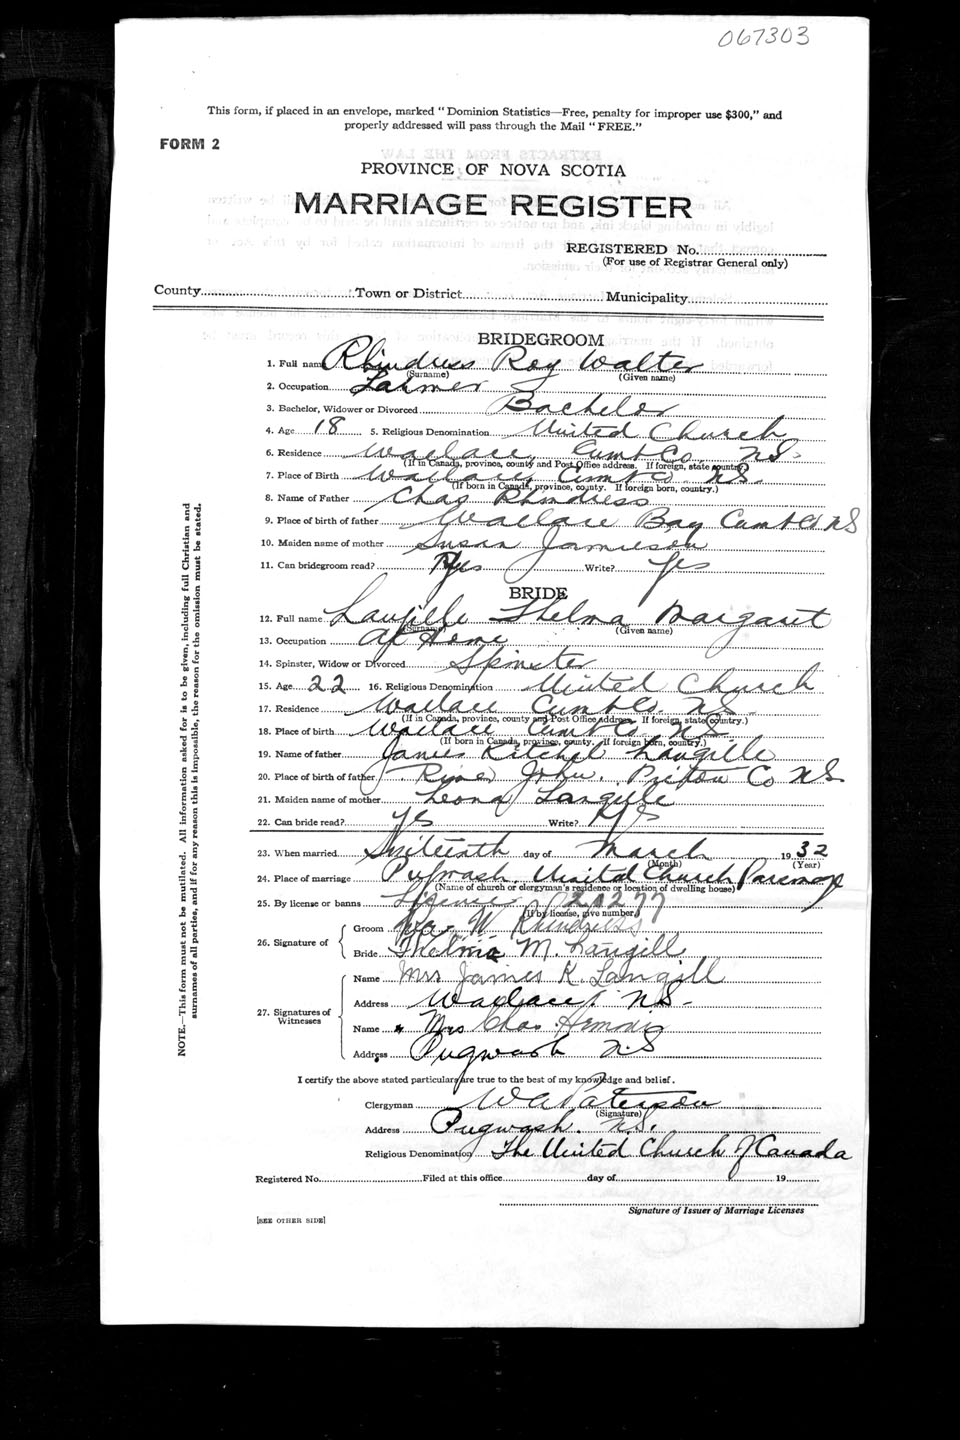 067303
This form, if placed in an envelope, marked "Dominion Statistics—Free, penalty for improper use $300," and
properly addressed will pass through the Mail "FREE."
FORM 2
PROVINCE OF NOVA SCOTIA
MARRIAGE REGISTER
REGISTERED No.
(For use of Registrar General only)
County Town or District Municipality
BRIDEGROOM
1. Full name Rhindress Roy Walter
(Surname) (Given name)
2. Occupation Farmer
3. Bachelor, Widower or Divorced Bachelor
4. Age 18 5. Religious Denomination United Church
6. Residence Wallace, Cumb Co. N.S.
(If in Canada, province, county and Post Office address. If foreign, state country.)
7. Place of Birth Wallace, Cumb Co. N.S.
(If born in Canada, province, county. If foreign born, country.)
8. Name of Father Chas Rhindress
9. Place of birth of father Wallace Bay Cumb Co N S
10. Maiden name of mother Susan Jamieson
11. Can bridegroom read? Yes Write? Yes
BRIDE
12. Full name Langille Thelma Margaret
(Surname) (Given name)
13. Occupation At Home
14. Spinster, Widow or Divorced Spinster
15. Age 22 16. Religious Denomination United Church
17. Residence Wallace Cumb Co. N.S.
(If in Canada, province, county and Post Office address. If foreign, state country.)
18. Place of birth Wallace Cumb Co. N.S.
(If born in Canada, province, county. If foreign born, country.)
19. Name of father James Langille
20. Place of birth of father River John, Pictou Co N S
21. Maiden name of mother Leona Langille
22. Can bride read? Yes Write? Yes
23. When married day of March 1932
(Month) (Year)
24. Place of marriage Pugwash United Church Parsonage
(Name of church or clergyman's residence or location of dwelling house)
25. By license or banns License 21277
(If by license, give number)
26. Signature of
Groom W. Rhindress
Bride Thelma M. Langill
27. Signatures of Witnesses
Name Mrs James K. Langill
Address Wallace N.S.
Name Mrs Chas
Address Pugwash N.S
I certify the above stated particulars are true to the best of my knowledge and belief.
Clergyman W A Paterson
(Signature)
Address Pugwash. N.S.
Religious Denomination The United Church of Canada
Registered No. Filed at this office day of 19
Signature of Issuer of Marriage Licenses
[SEE OTHER SIDE]
NOTE.—This form must not be mutilated. All information asked for is to be given, including full Christian and
surnames of all parties, and if for any reason this is impossible, the reason for the omission must be stated.